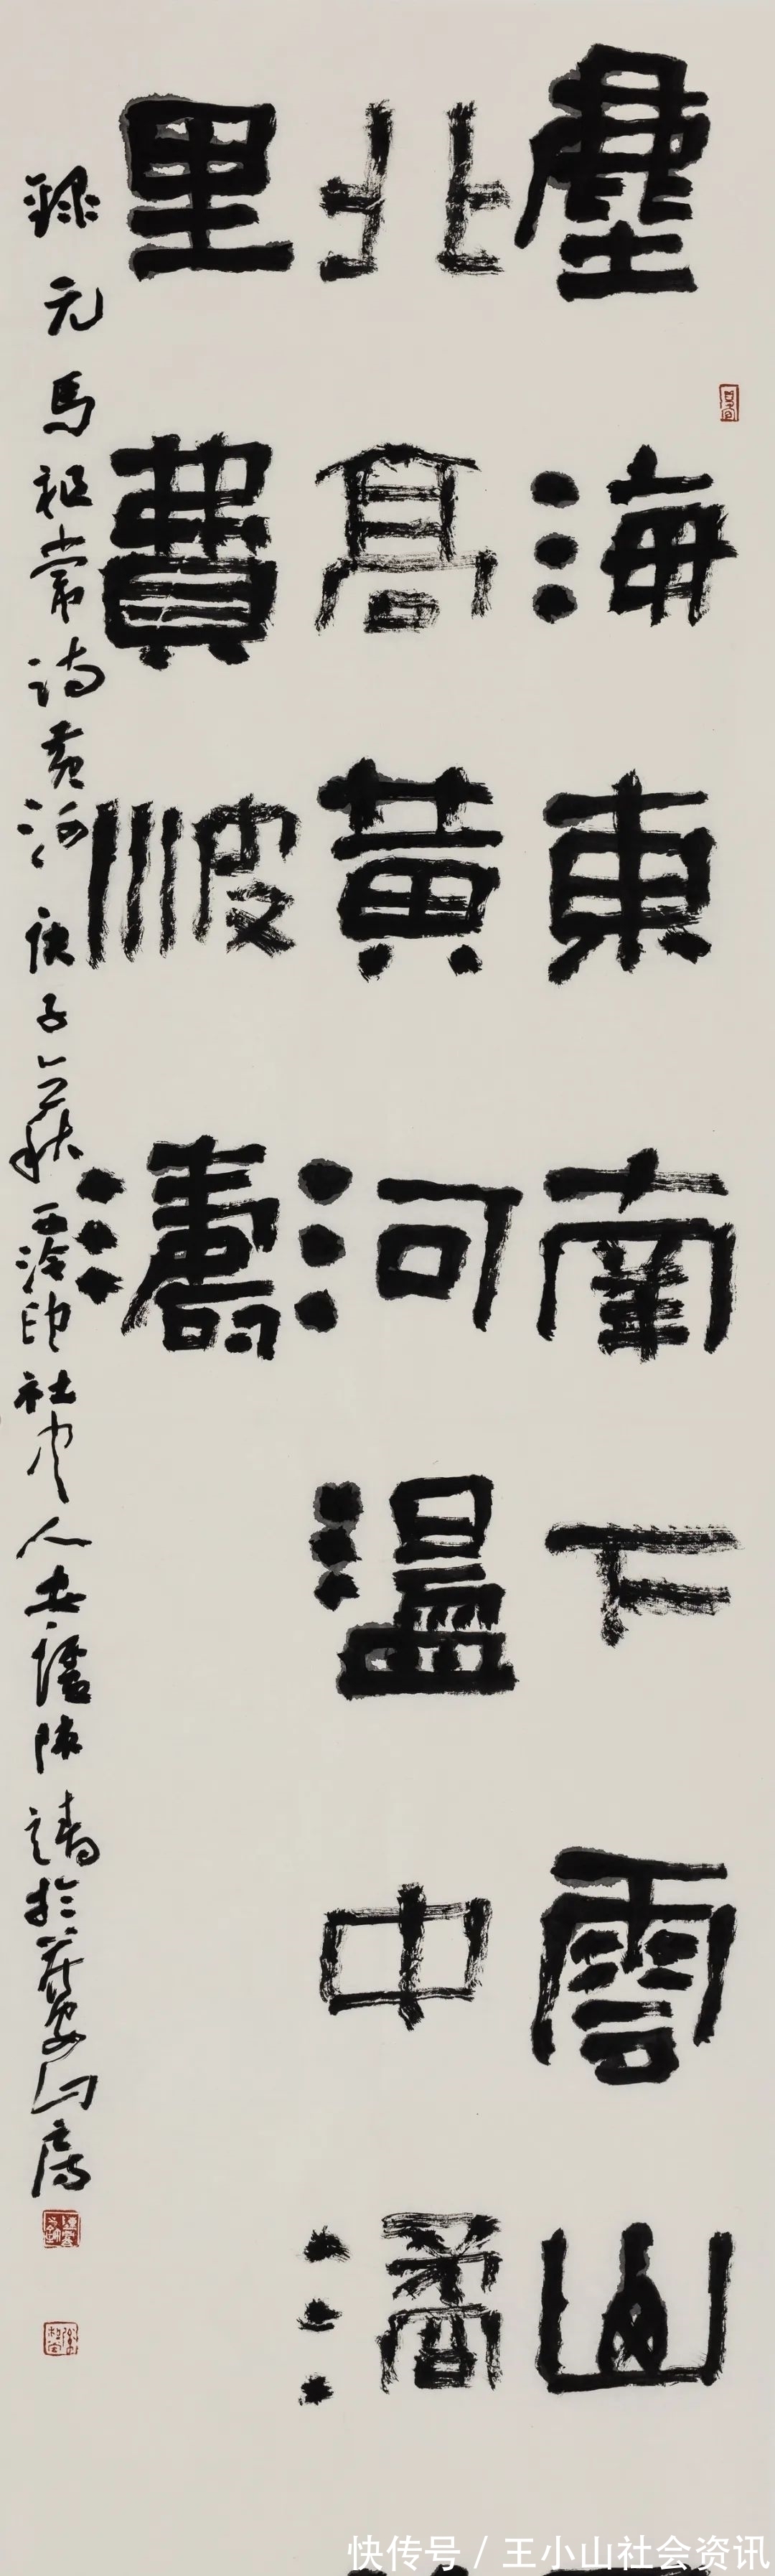 塵海東南下雲山
北高黃河溫中潏
里費波濤
錄元馬祖常詩黃河庚子立秋西泠印社中人陳靖於山房
快传号/王小山社会资讯